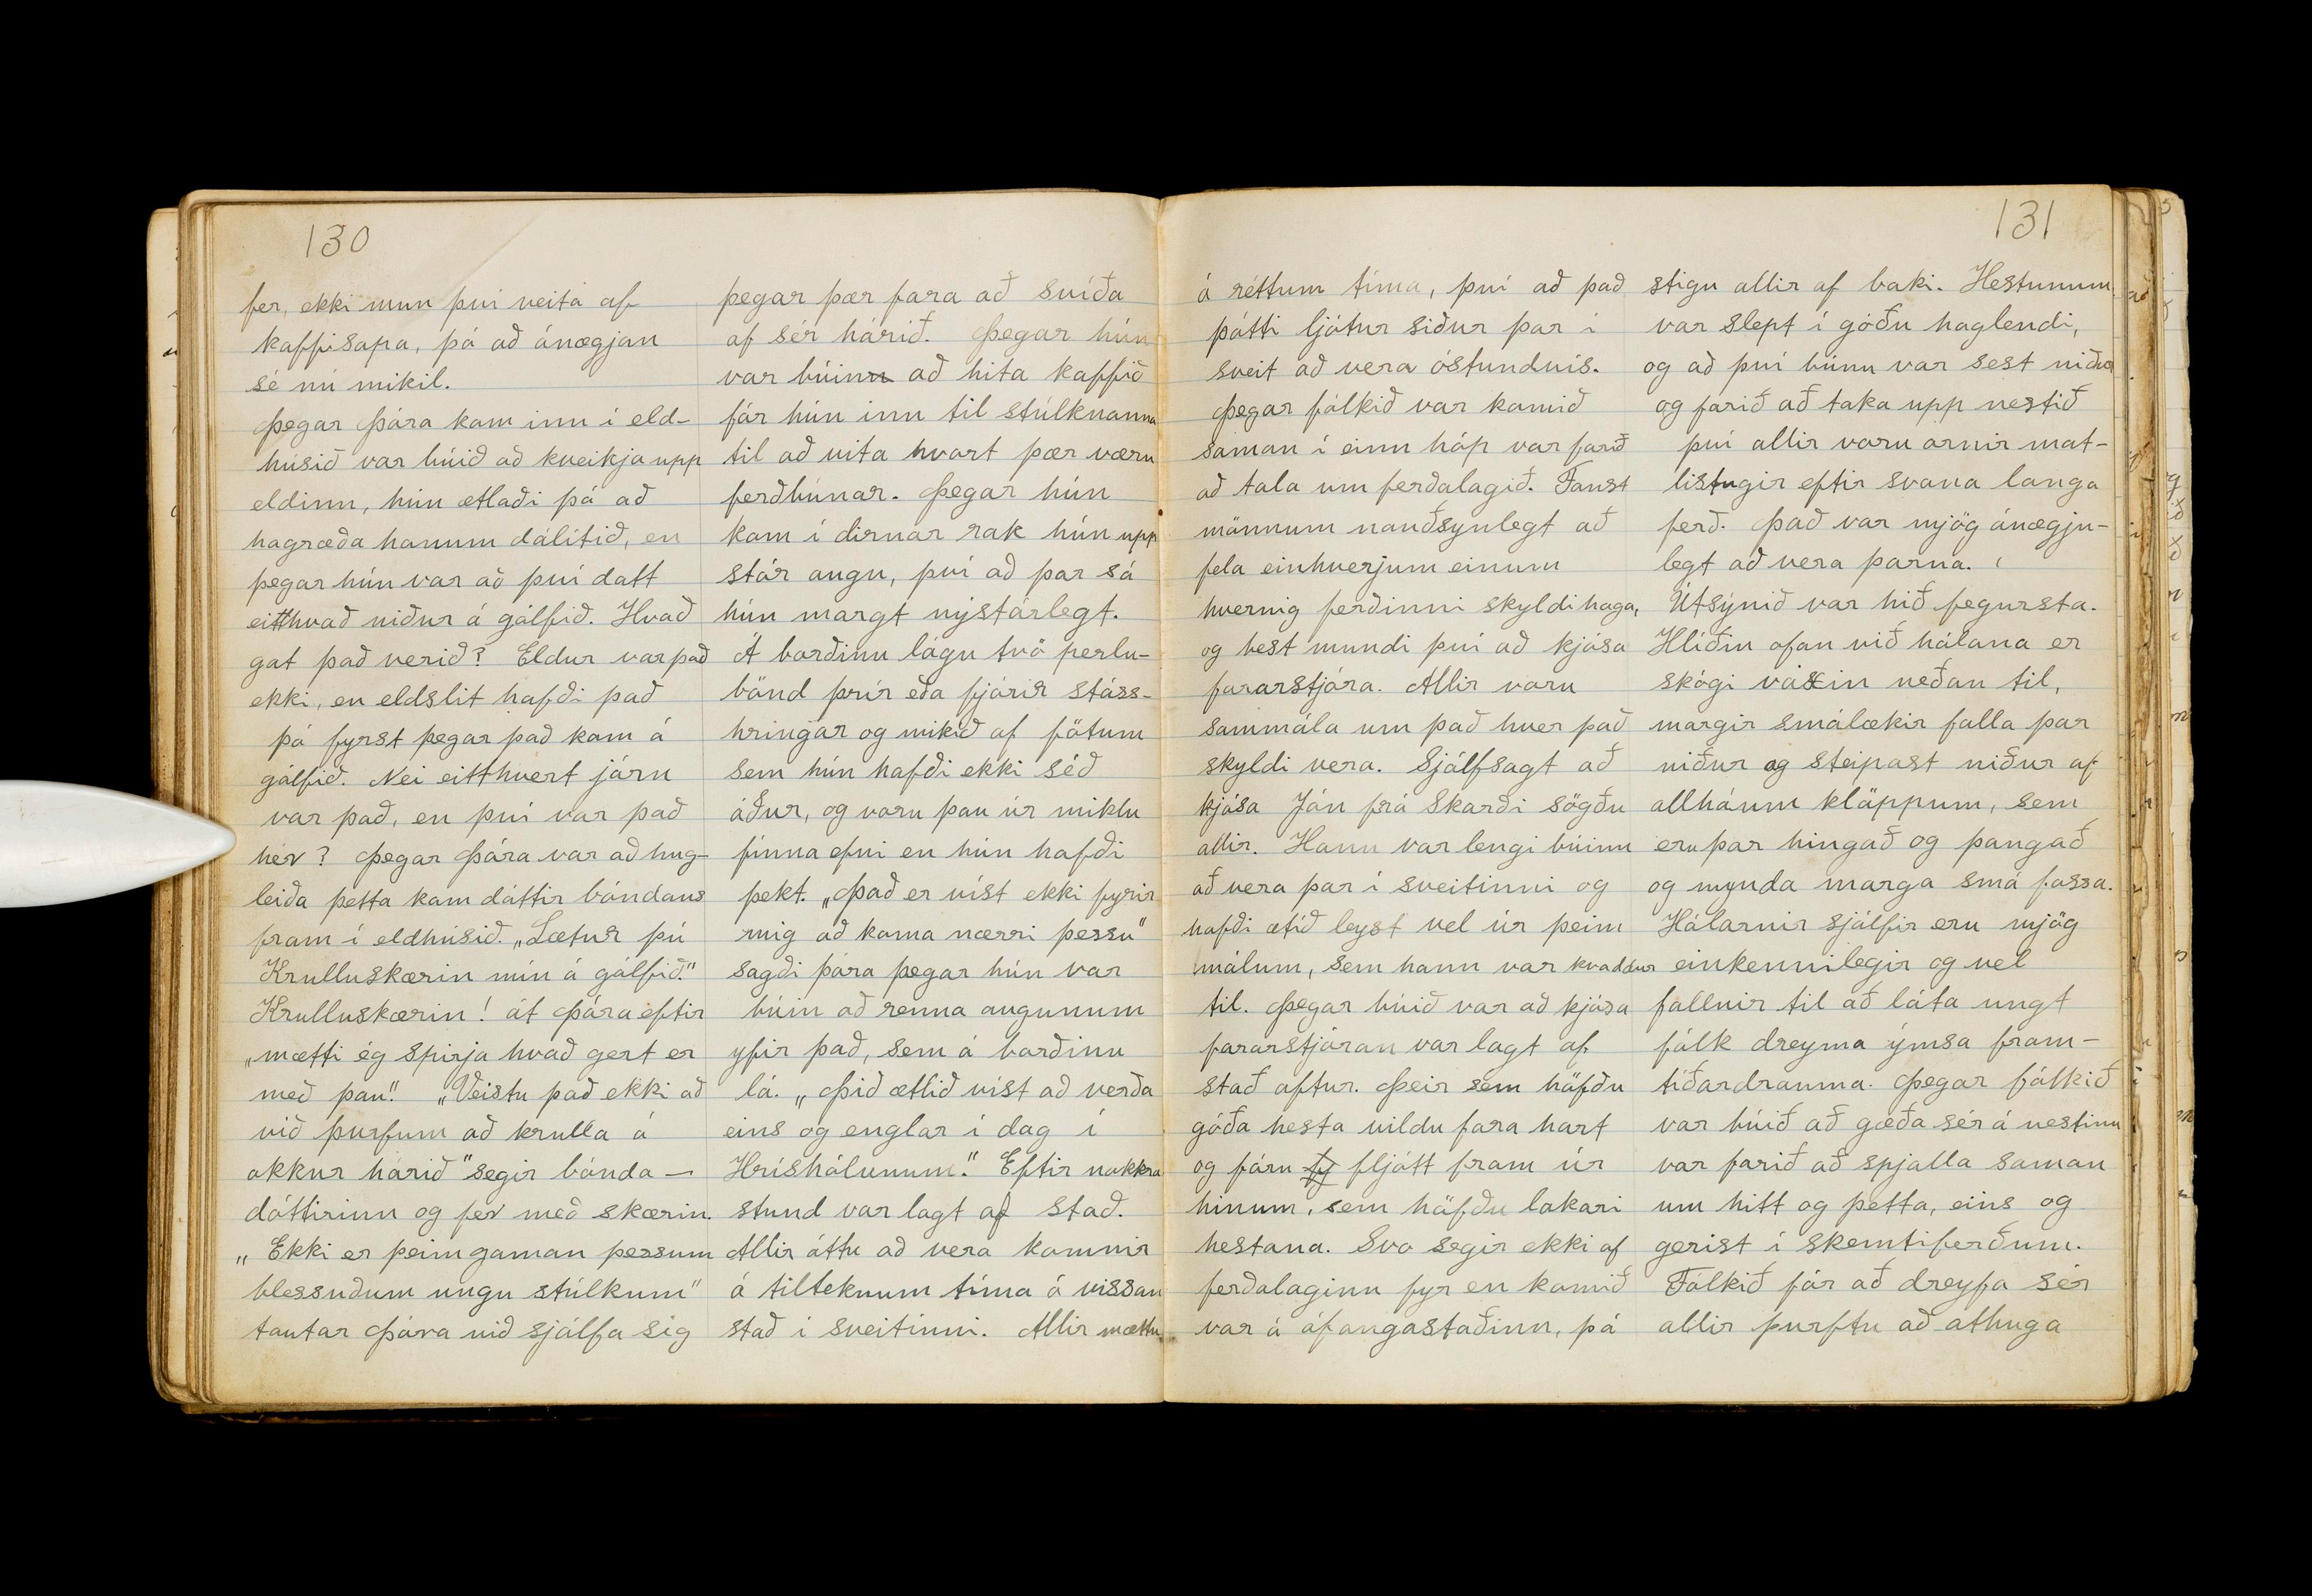 130
fer, ekki mun því veita af
kaffisopa, þó að ánægjan
sé nú mikil.
Þegar Þóra kom inn í eld-
húsið var búið að kveikja upp
eldinn, hún ætlaði þá að
hagræða honum dálítið, en
þegar hún var að því datt
eitthvað niður á gólfið. Hvað
gat það verið? Eldur var það
ekki, en eldslit hafði það
þó fyrst þegar það kom á
gólfið. Nei eitthvert járn
var það, en því var það
hér? Þegar Þóra var að hug-
leiða þetta kom dóttir bóndans
fram í eldhúsið. „Lætur þú
Krulluskærin mín á gólfið."
Krulluskærin! át Þóra eftir
„mætti ég spirja hvað gert er
með þau". „Veistu það ekki að
við þurfum að krulla á
okkur hárið" segir bónda-
dóttirinn og fer með skærin.
„Ekki er þeim gaman þessum
blessuðum ungu stúlkum"
tautar Þóra við sjálfa sig
þegar þær fara að svíða
af sér hárið. Þegar hún
var búin að hita kaffið
fór hún inn til stúlknanna
til að vita hvort þær væru
ferðbúnar. Þegar hún
kom í dirnar rak hún upp
stór augu, því að þar sá
hún margt nýstárlegt.
Á borðinu lágu tvö perlu-
bönd þrír eða fjórir stáss-
hringar og mikið af fötum
sem hún hafði ekki séð
áður, og voru þau úr miklu
fínna efni en hún hafði
þekt. „Það er víst ekki fyrir
mig að koma nærri þessu"
sagði þóra þegar hún var
búin að renna augunum
yfir það, sem á borðinu
lá. „Þið ætlið víst að verða
eins og englar í dag í
Hríshólunum". Eftir nokkra
stund var lagt af stað.
Allir áttu að vera komnir
á tilteknum tíma á vissan
stað í sveitinni. Allir mættu
131
á réttum tíma, því að það
þótti ljótur siður þar í
sveit að vera óstundvís.
Þegar fólkið var komið
saman í einn hóp var farið
að tala um ferðalagið. Fanst
mönnum nauðsynlegt að
fela einhverjum einum
hvernig ferðinni skyldi haga,
og best mundi því að kjósa
fararstjóra. Allir voru
sammála um það hver það
skyldi vera. Sjálfsagt að
kjósa Jón frá Skarði sögðu
allir. Hann var lengi búinn
að vera þar í sveitinni og
hafði ætíð leyst vel úr þeim
málum, sem hann var kvaddur
til. Þegar búið var að kjósa
fararstjóran var lagt af
stað aftur. Þeir sem höfðu
góða hesta vildu fara hart
og fóru fljótt fram úr
hinum, sem höfðu lakari
hestana. Svo segir ekki af
ferðalaginu fyr en komið
var á áfangastaðinn, þá
stigu allir af baki. Hestunum
var slept í góðu haglendi,
og að því búnu var sest niður
og farið að taka upp nestið
því allir voru ornir mat-
listugir eftir svona langa
ferð. Það var mjög ánægju-
legt að vera þarna.
Útsýnið var hið fegursta.
Hlíðin ofan við hólana er
skógi vásin neðan til,
margir smálækir falla þar
niður og steipast niður af
allháum klöppum, sem
eru þar hingað og þangað
og mynda marga smá fossa.
Hólarnir sjálfir eru mjög
einkennilegir og vel
fallnir til að láta ungt
fólk dreyma ýmsa fram-
tíðardrauma. Þegar fólkið
var búið að gæða sér á nestinu
var farið að spjalla saman
um hitt og þetta, eins og
gerist í skemtiferðum.
Fólkið fór að dreyfa sér
allir þurftu að athuga